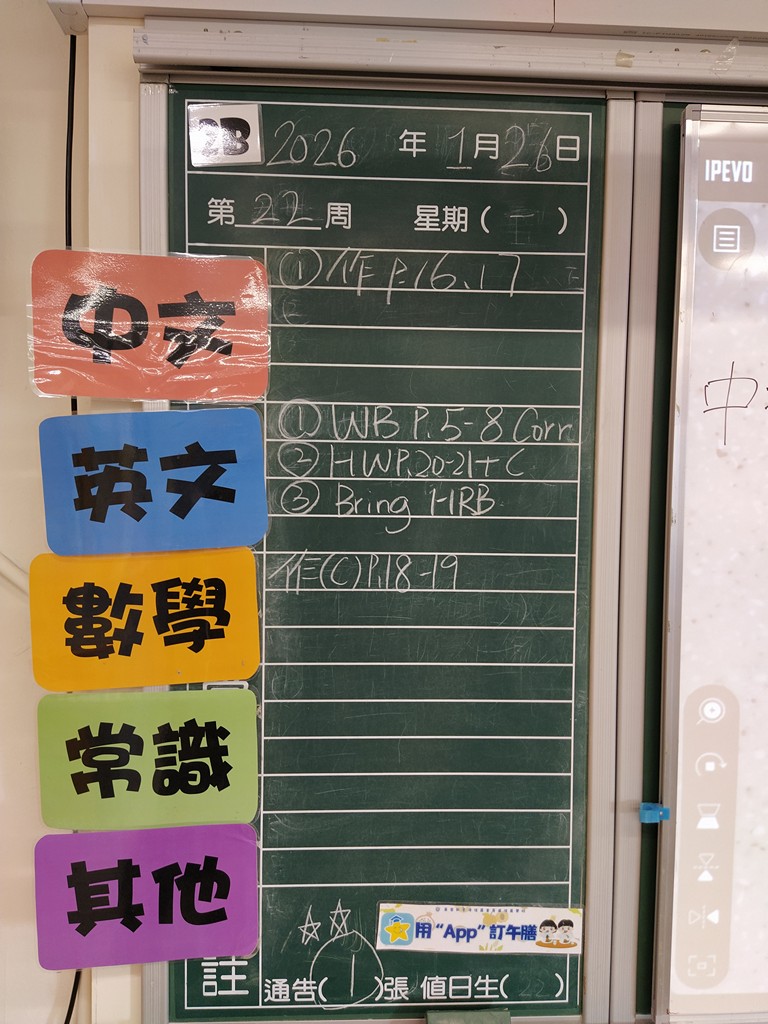 2B 2026 年 1 月 26 日
第 22 周 星期( )
中文
① 作 p.16、17
英文
① WB P.5-8 Corr
② HWP.20-21+C
③ Bring HRB
數學
作(C)P.18-19
常識
其他
用“App”訂午膳
註
通告( 1 )張 值日生( 22 )
IPEVO
中